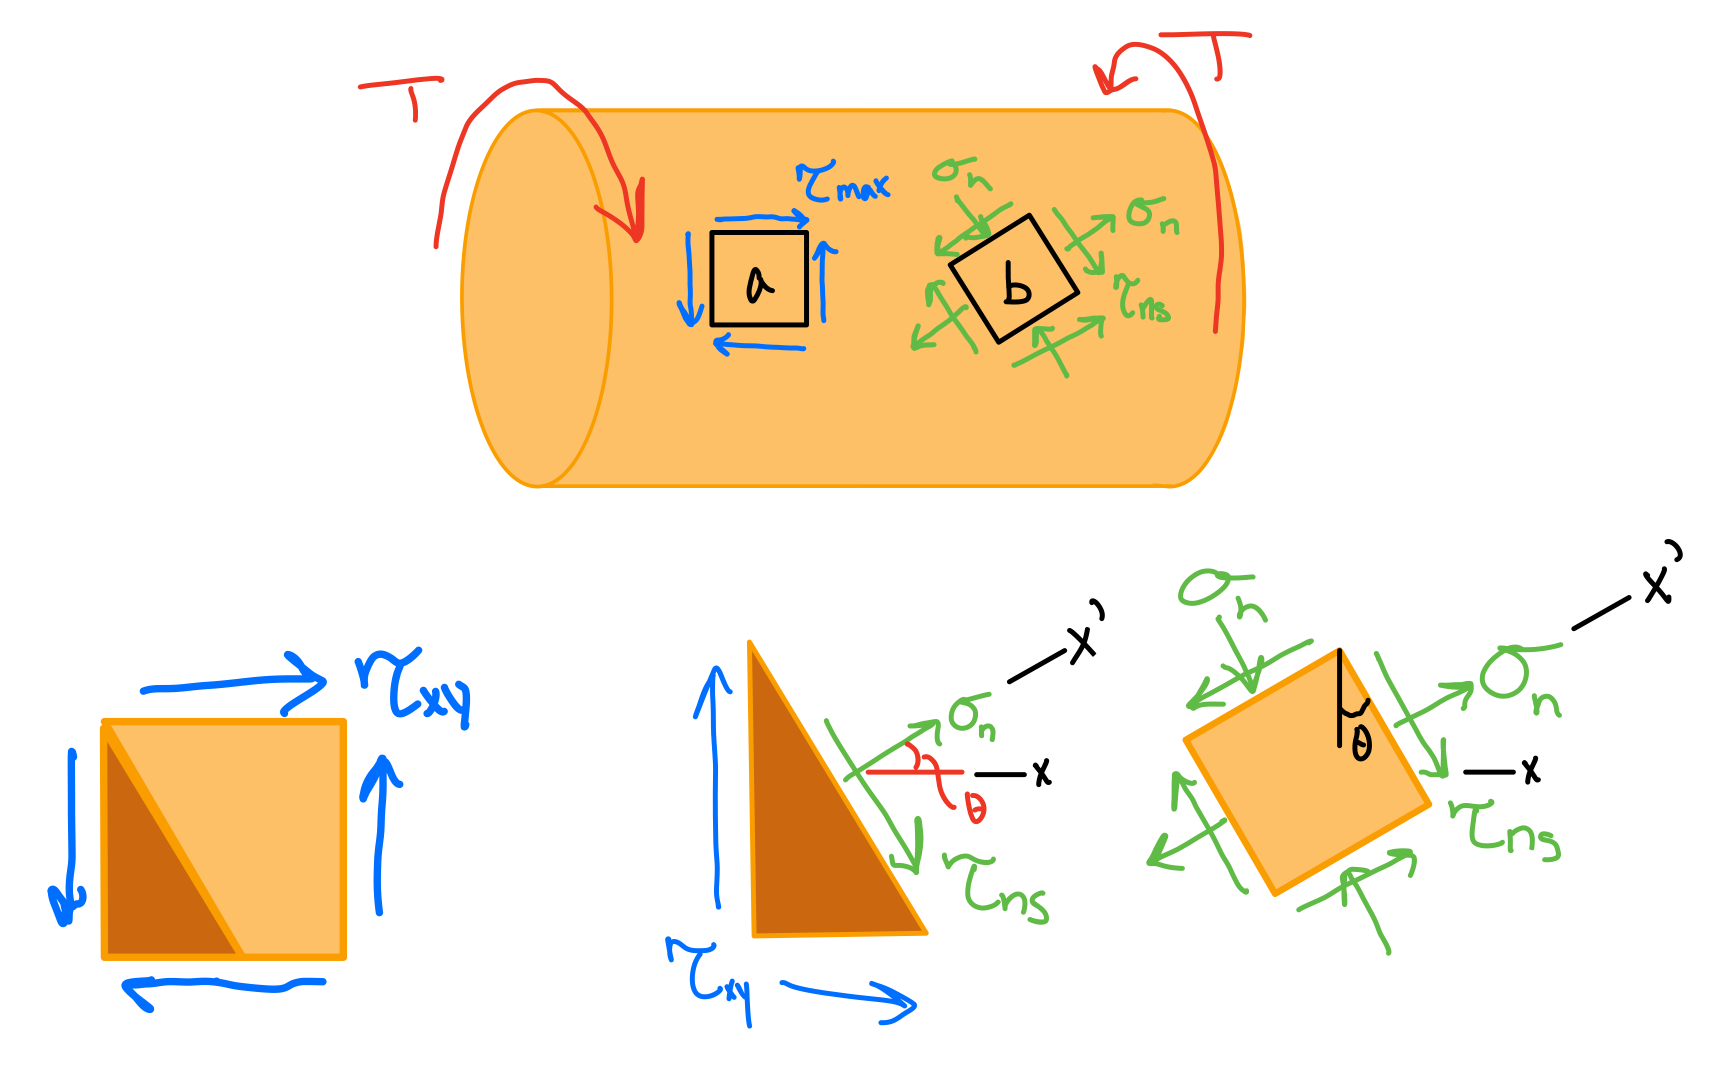 T
T
τmax
σn
σn
a
b
τns
τxy
x'
σn
x
θ
τns
τxy
σn
x'
σn
θ
x
τns